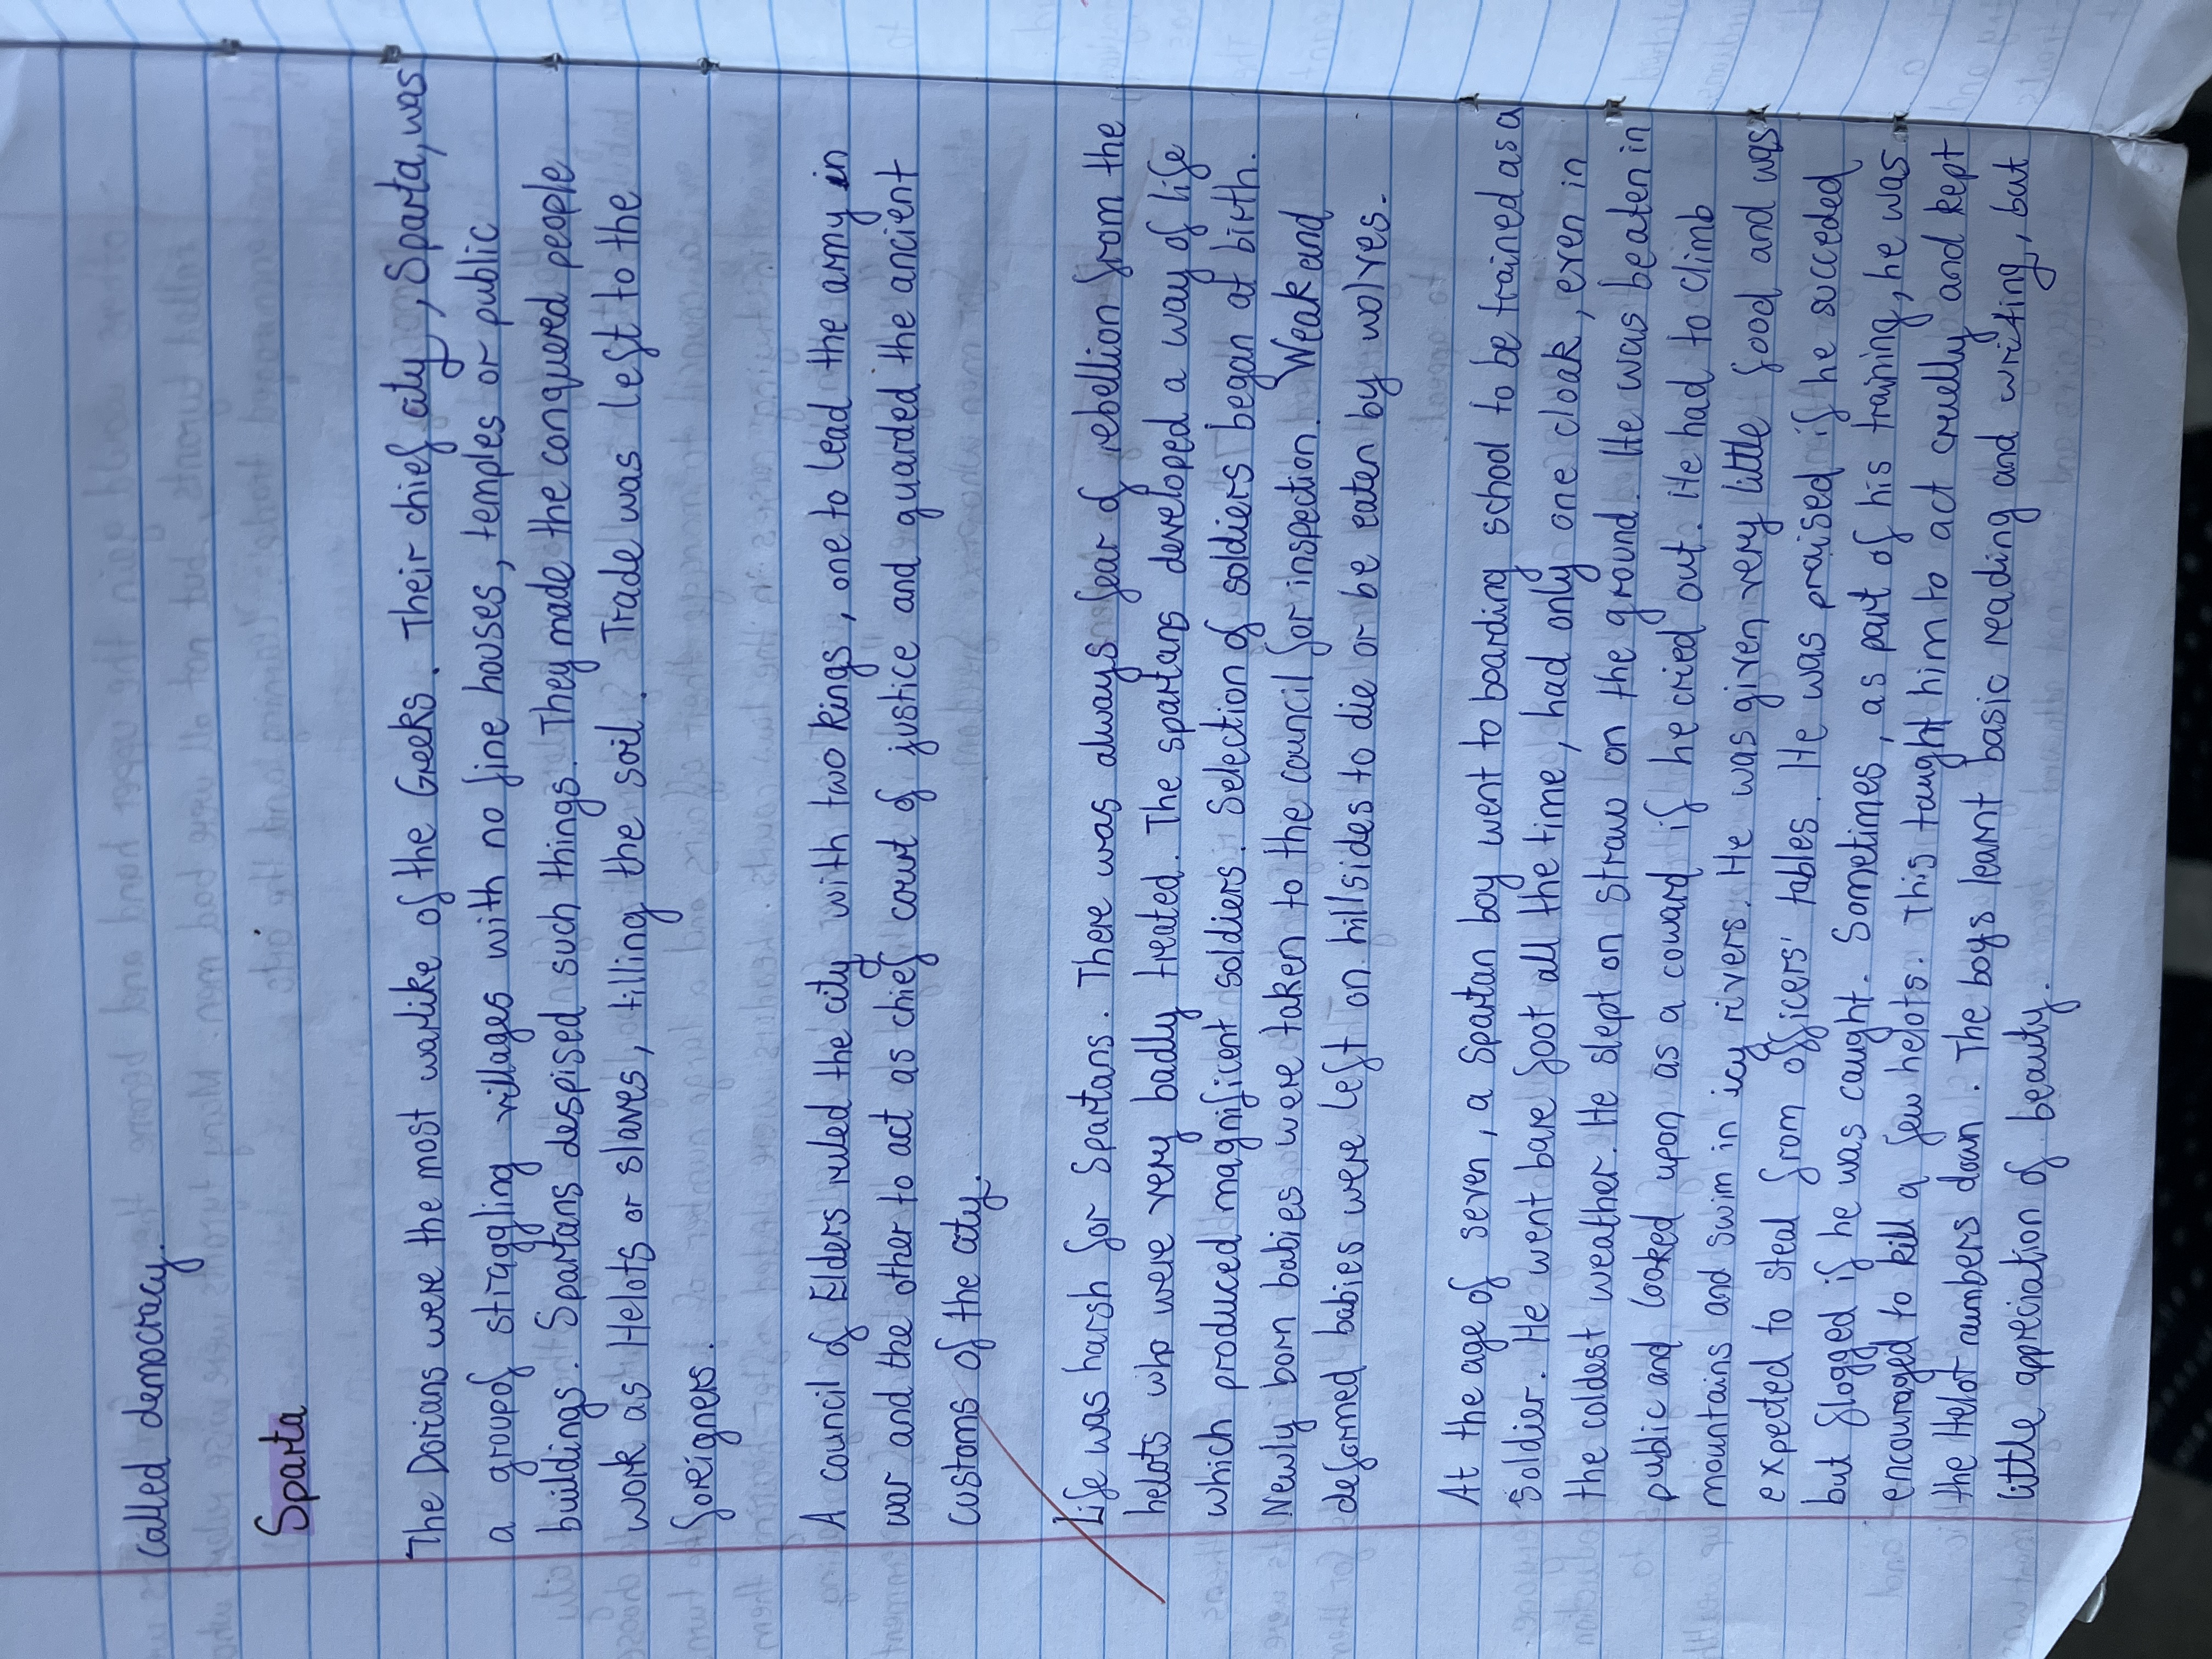 called democracy.
Sparta
The Dorians were the most warlike of the Greeks. Their chief city, Sparta, was
a group of straggling villages with no fine houses, temples or public
buildings. Spartans despised such things. They made the conquered people
work as Helots or slaves, tilling the soil. Trade was left to the
foreigners.
A council of Elders ruled the city with two Kings, one to lead the army in
war and the other to act as chief court of justice and guarded the ancient
customs of the city.
Life was harsh for Spartans. There was always fear of rebellion from the
helots who were very badly treated. The spartans developed a way of life
which produced magnificent soldiers. Selection of soldiers began at birth.
Newly born babies were taken to the council for inspection. Weak and
deformed babies were left on hillsides to die or be eaten by wolves.
At the age of seven, a Spartan boy went to boarding school to be trained as a
soldier. He went bare foot all the time, had only one cloak, even in
the coldest weather. He slept on straw on the ground. He was beaten in
public and looked upon as a coward if he cried out. He had to climb
mountains and swim in icy rivers. He was given very little food and was
expected to steal from officers' tables. He was praised if he succeded
but flogged if he was caught. Sometimes, as part of his training, he was
encouraged to kill a few helots. This taught him to act cruelly and kept
the Helot numbers down. The boys learnt basic reading and writing, but
little appreciation of beauty.